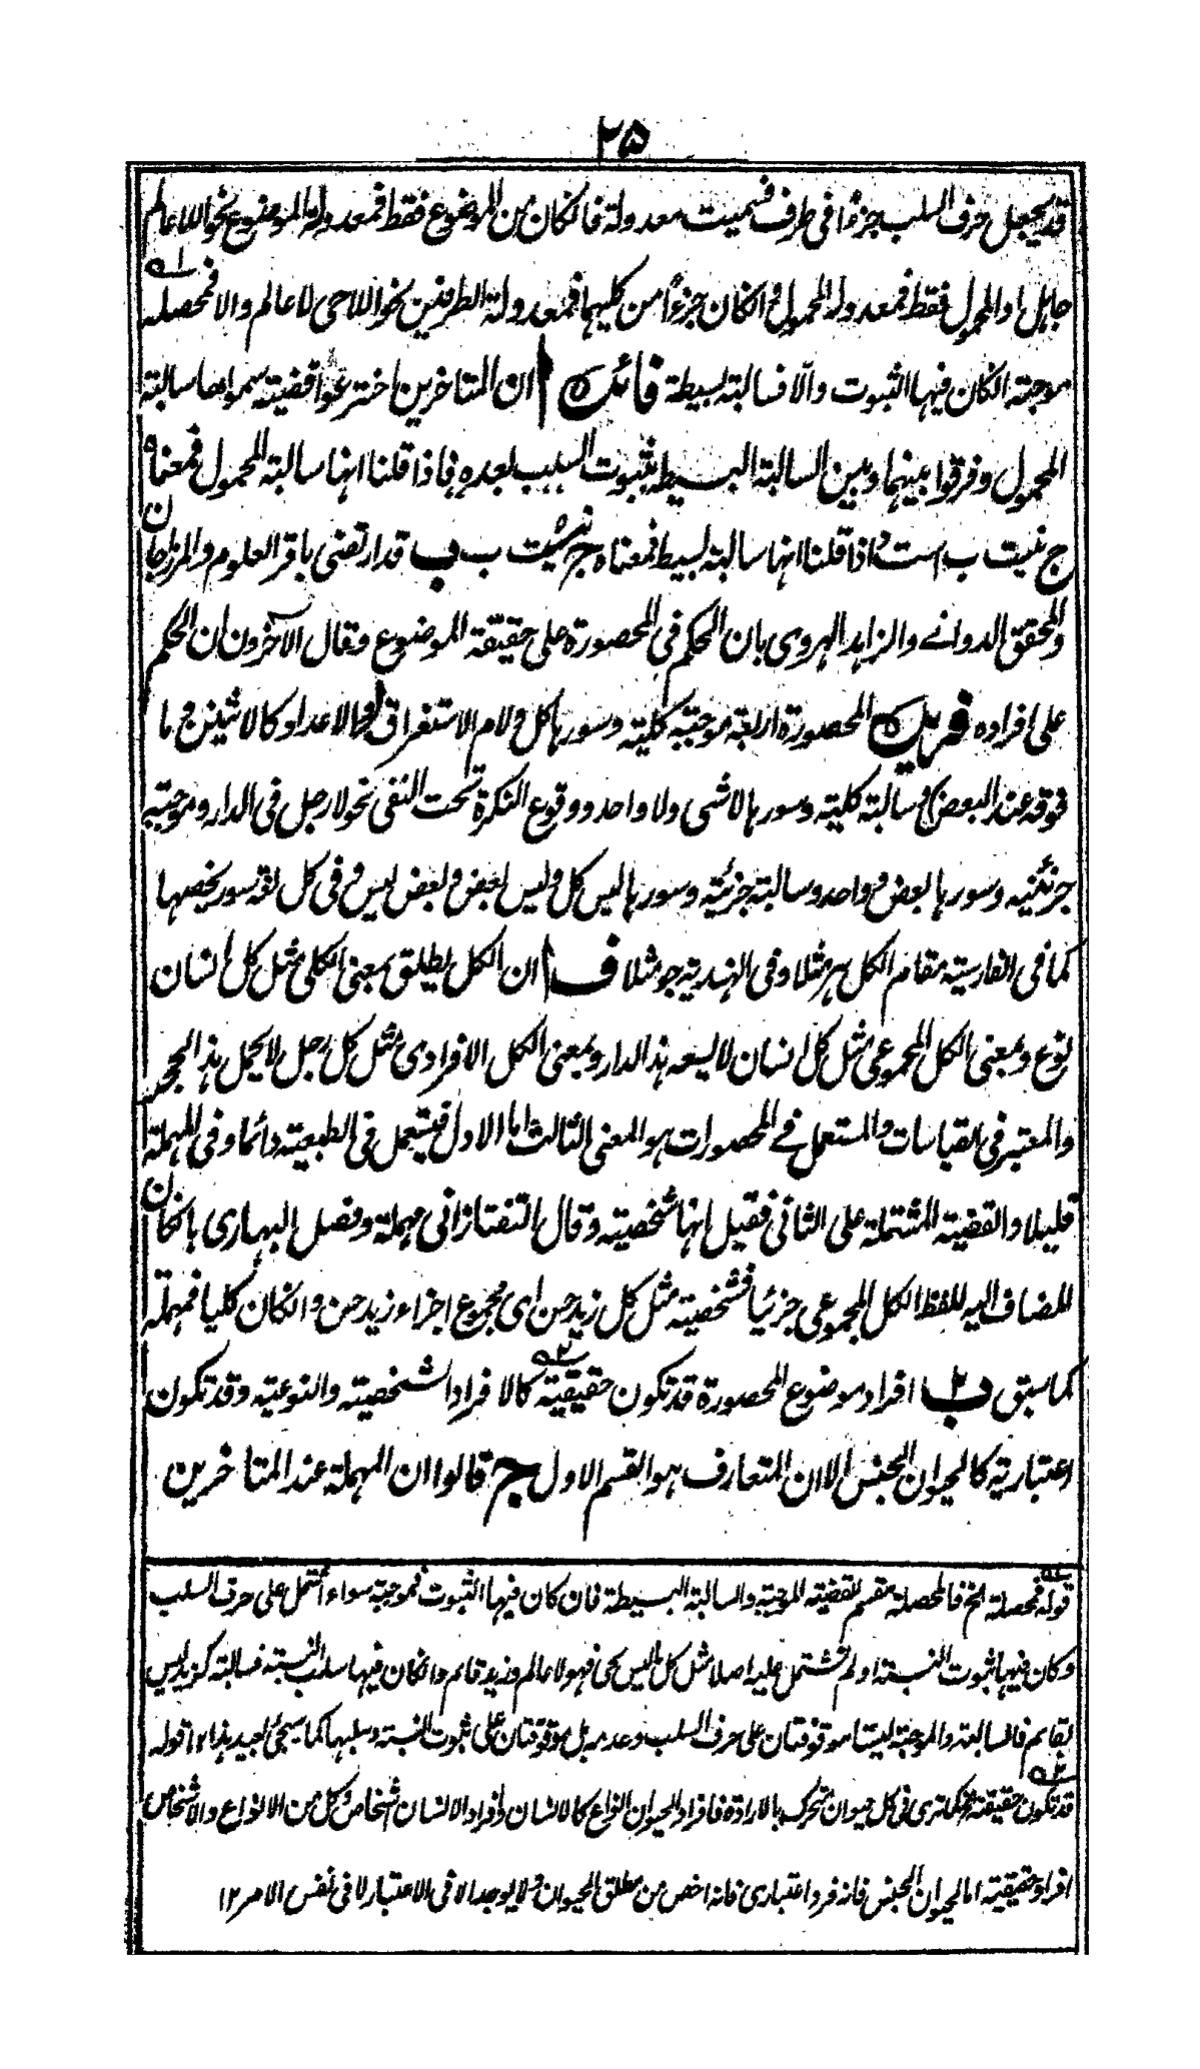 ۲۵
قد يجعل حرف السلب جزءًا فى طرف فسميت معدولة فانكان من الموضوع فقط فمعدولة الموضوع نحو اللاعالم
جاهل او المحمول فقط فمعدولة المحمول و انكان جزءًا من كليهما فمعدولة الطرفين نحو اللاحى لا عالم والا فمحصلة
موجبة انكان فيها الثبوت والّا فسالبة بسيطة فائدة ان المتاخرين اخترعوا قضية سموها سالبة
المحمول وفرقوا بينها وبين السالبة البسيطة بثبوت السلب بعده فاذا قلنا انها سالبة المحمول فمعناه
ج نيست ب است و اذا قلنا انها سالبة بسيط فمعناه ج نيست ب ف قد ارتضى باقر العلوم والمرزاجان
والمحقق الدوانے والزاهد الهروى بان الحكم فى المحصورة على حقيقة الموضوع وقال الآخرون ان الحكم
على افراده فريدة المحصورة اربعة موجبة كلية وسورها كل و لام الاستغراق و الاعداد كالاثنين و ما
فوقه عند البعض و سالبة كلية وسورها لا شى ولا واحد ووقوع النكرة تحت النفى نحو لا رجل فى الدار وموجبة
جزئية وسورها بعض و واحد وسالبة جزئية وسورها ليس كل و ليس بعض و بعض ليس و فى كل لغة سور يخصها
كما فى الفارسية مقام الكل هر مثلا وفى الهندية جو مثلا ف ان الكل يطلق بمعنى الكلى مثل كل انسان
نوع وبمعنى الكل المجموعى مثل كل انسان لا يسعه هذا الدار وبمعنى الكل الافرادى مثل كل رجل لا يحمل هذا الحجر
والمعتبر فى القياسات والمستعمل فے المحصورات هو المعنى الثالث اما الاول فيستعمل فى الطبعية دائما وفى المهملة
قليلا والقضية المشتملة على الثانى فقيل انها شخصية وقال التفتازانى مهملة وفصل البهارى بانكان
المضاف اليه للفظ الكل المجموعى جزئيا فشخصية مثل كل زيد حسن اى مجموع اجزاء زيد حسن و انكان كليا فمهملة
كما سبق ف٢ افراد موضوع المحصورة قد تكون حقيقية كالافراد الشخصية والنوعية وقد تكون
اعتبارية كالحيوان الجنس الا ان المتعارف هو القسم الاول ج قالوا ان المهملة عند المتاخرين
قوله فمحصلة الخ فالمحصلة مقسم للقضية الموجبة والسالبة البسيطة فان كان فيها الثبوت فموجبة سواء اشتمل على حرف السلب
وكان فيها ثبوت النسبة او لم تشتمل عليه اصلا مثل كل ليس بحى فهو لا عالم و زيد قائم و انكان فيها سلب النسبة فسالبة كزيد ليس
بقائم فالسالبة والموجبة ليستا موقوفتان على حرف السلب وعدمه بل موقوفتان على ثبوت النسبة وسلبها كما سيجئ بعيد هذا ١٢ قوله
قد تكون حقيقية كما ترى فى كل حيوان متحرك بالارادة فافراد الحيوان انواع كالانسان و افراد الانسان اشخاص و كل من الانواع والاشخاص
افراد حقيقية اما الحيوان الجنس فانه فرد اعتبارى فانه اخص من مطلق الحيوان و لا يوجد الا فى الاعتبار لا فى نفس الامر ١٢